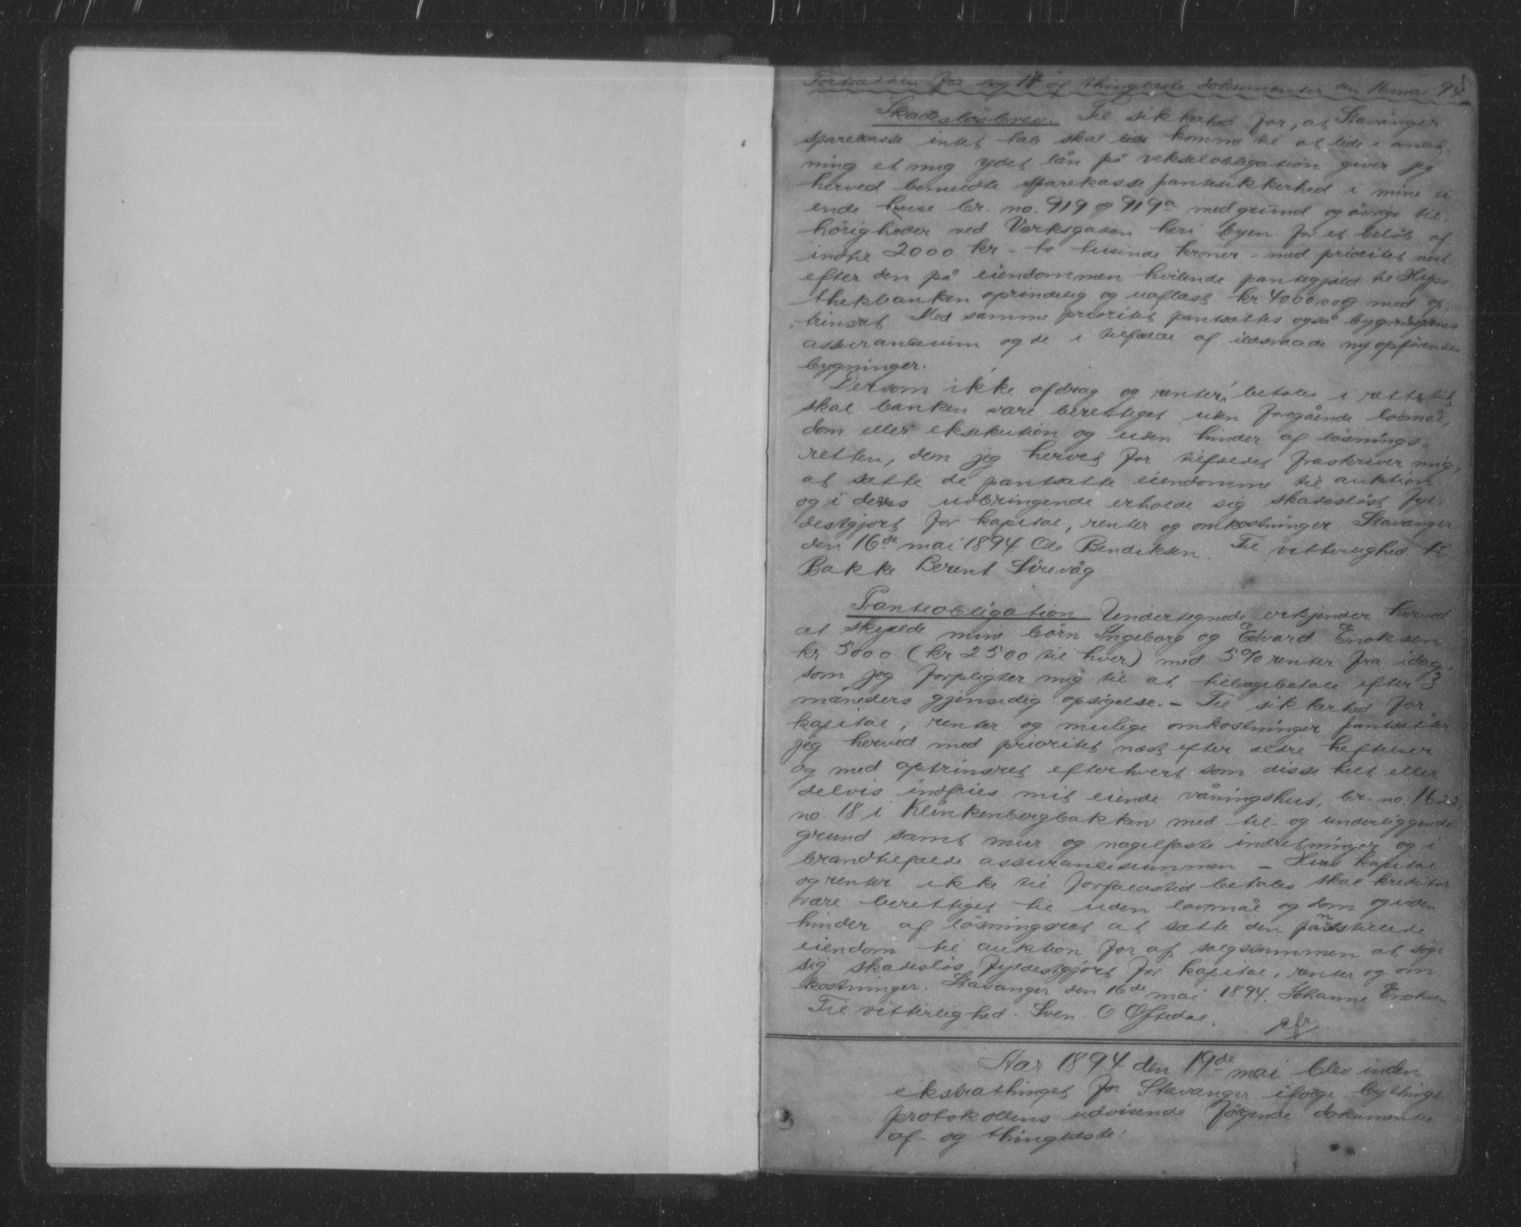 Fortsættes fra sag 14 af thinglæste dokumenter den 16 mai 94
Skadesløsbrev. Til sikkerhed for, at Stavanger
sparekasse intet tab skal komme til at lide i anled-
ning et mig ydet lån på vekselobligation giver jeg
herved bemeldte sparekasse pantesikkerhed i mine ei-
ende huse br. no. 919 og 919a med grund og øvrige til-
hørigheder ved Værksgaden heri byen for et beløb af
indtil 2000 kr - to tusinde kroner - med prioritet næst
efter den på eiendommen hvilende pantegjæld til Hypo-
thekbanken oprindelig og uafløst kr 4000,00 og med op-
trinsret. Med samme prioritet pantsættes også bygningernes
assurancesum og de i tilfælde af ildsvaade nyopførendes
bygninger.
Dersom ikke afdrag og renter betales i rette tid
skal banken være berettiget uden foregående lovmål,
dom eller eksekution og uden hinder af løsnings-
retten, dem jeg herved for tilfældet fraskriver mig,
at sætte de pantsatte eiendomme til auktion
og i deres udbringende erholde sig skadesløst fyl-
destgjort for kapital, renter og omkostninger Stavanger
den 16de mai 1894 Ole Bendiksen. Til vitterlighed
Bakke. Berent Sørevåg
Panteobligation Undertegnede erkjender herved
at skylde mine børn Ingeborg og Edvard Enoksen
kr 5000 (kr 2500 til hver) med 5% renter fra idag,
som jeg forpligter mig til at tilbagebetale efter 3
måneders gjensidig opsigelse. - Til sikkerhed for
kapital, renter og mulige omkostninger pantsætter
jeg herved med prioritet næst efter ældre heftelser
og med optrinsret efterhvert som disse helt eller
delvis indfries mit eiende våningshus, br. no. 1622
no. 18 i Klinkenbergbakken med til- og underliggende
grund samt mur og nagelfaste indretninger og i
brandtilfælde assurancesummen - Hvis kapital
og renter ikke til forfaldstid betales skal kreditor
være berettiget til uden lovmål og dom og uden
hinder af løsningsret at sætte den pantstillede
eiendom til auktion for af salgssummen at søge
sig skadesløs fyldestgjort for kapital, renter og om-
kostninger. Stavanger den 16de mai 1894. Johanne Enoksen
Til vitterlighed. Sven. O Oftedal.
Aar 1894 den 19de mai blev inden
ekstrathinget for Stavanger ifølge bythings-
protokollens udvisende følgende dokumenter
af- og thinglæste: